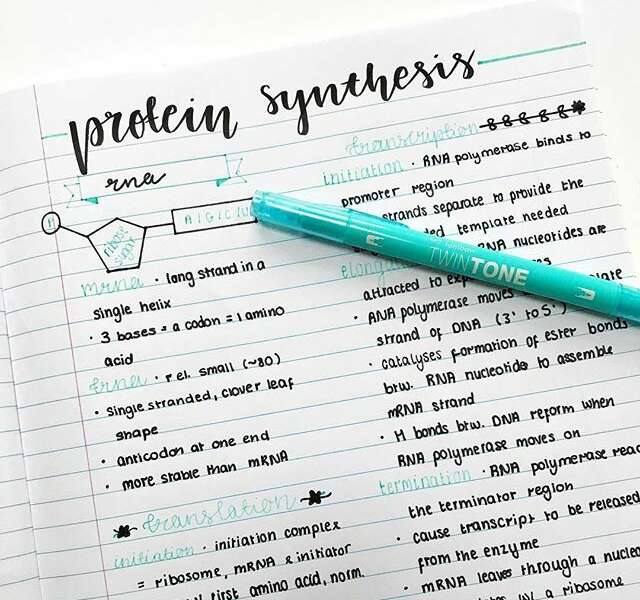 protein synthesis
rna
ribose sugar
A I G I C I U
mrna · long strand in a
single helix
· 3 bases = a codon = 1 amino
acid
trna · rel. small (~80)
· single stranded, clover leaf
shape
· anticodon at one end
· more stable than mRNA
translation
initiation · initiation complex
= ribosome, mRNA & initiator
first amino acid, norm.
transcription
initiation · RNA polymerase binds to
promoter region
strands separate to provide the
template needed
RNA nucleotides are
attracted to
· RNA polymerase moves
strand of DNA (3' to 5')
· catalyses formation of ester bonds
btw. RNA nucleotide to assemble
mRNA strand
· H bonds btw. DNA reform when
RNA polymerase moves on
termination · RNA polymerase
the terminator region
· cause transcript to be released
from the enzyme
· mRNA leaves through a
by a ribosome
TWINTONE